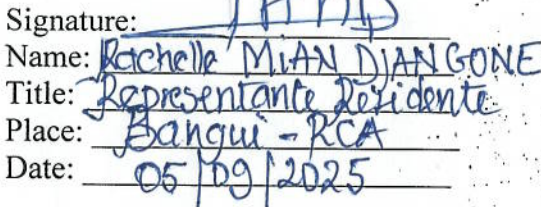 Signature:
Name: Rachelle MIAN DJANGONE
Title: Representante Résidente
Place: Bangui - RCA
Date: 05/09/2025